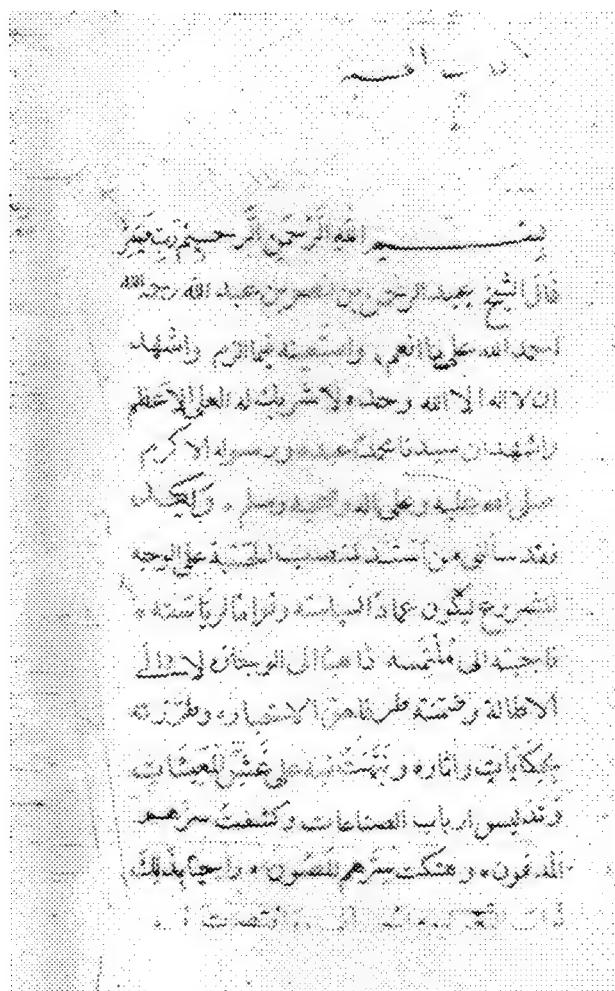 بســـم الله الرحمن الرحيم
قال الشيخ عبد الرحمن بن نصر بن عبد الله رحمه الله
احمد الله على ما انعم، واستعينه فيما الزم واشهد
ان لا اله الا الله وحده لا شريك له العلي الاعظم
واشهد ان سيدنا محمدا عبده ورسوله الاكرم
صلى الله عليه وعلى اله وصحبه وسلم، وبعــد
فقد سألني من استند لمنصب الحسبة على الوجه
المشروع ليكون عمادا لسياسته وقواما لرياسته
فاجبته الى ملتمسه ذاهبا الى الوجازه لا الى
الاطالة وضمنته طرفا من الاخبار وطرزته
بحكايات واثار ونبهت فيه على غش المعيشات
وتدليس ارباب الصناعات وكشفت سرهم
المدفون وهتكت سترهم المصون راجيا بذلك